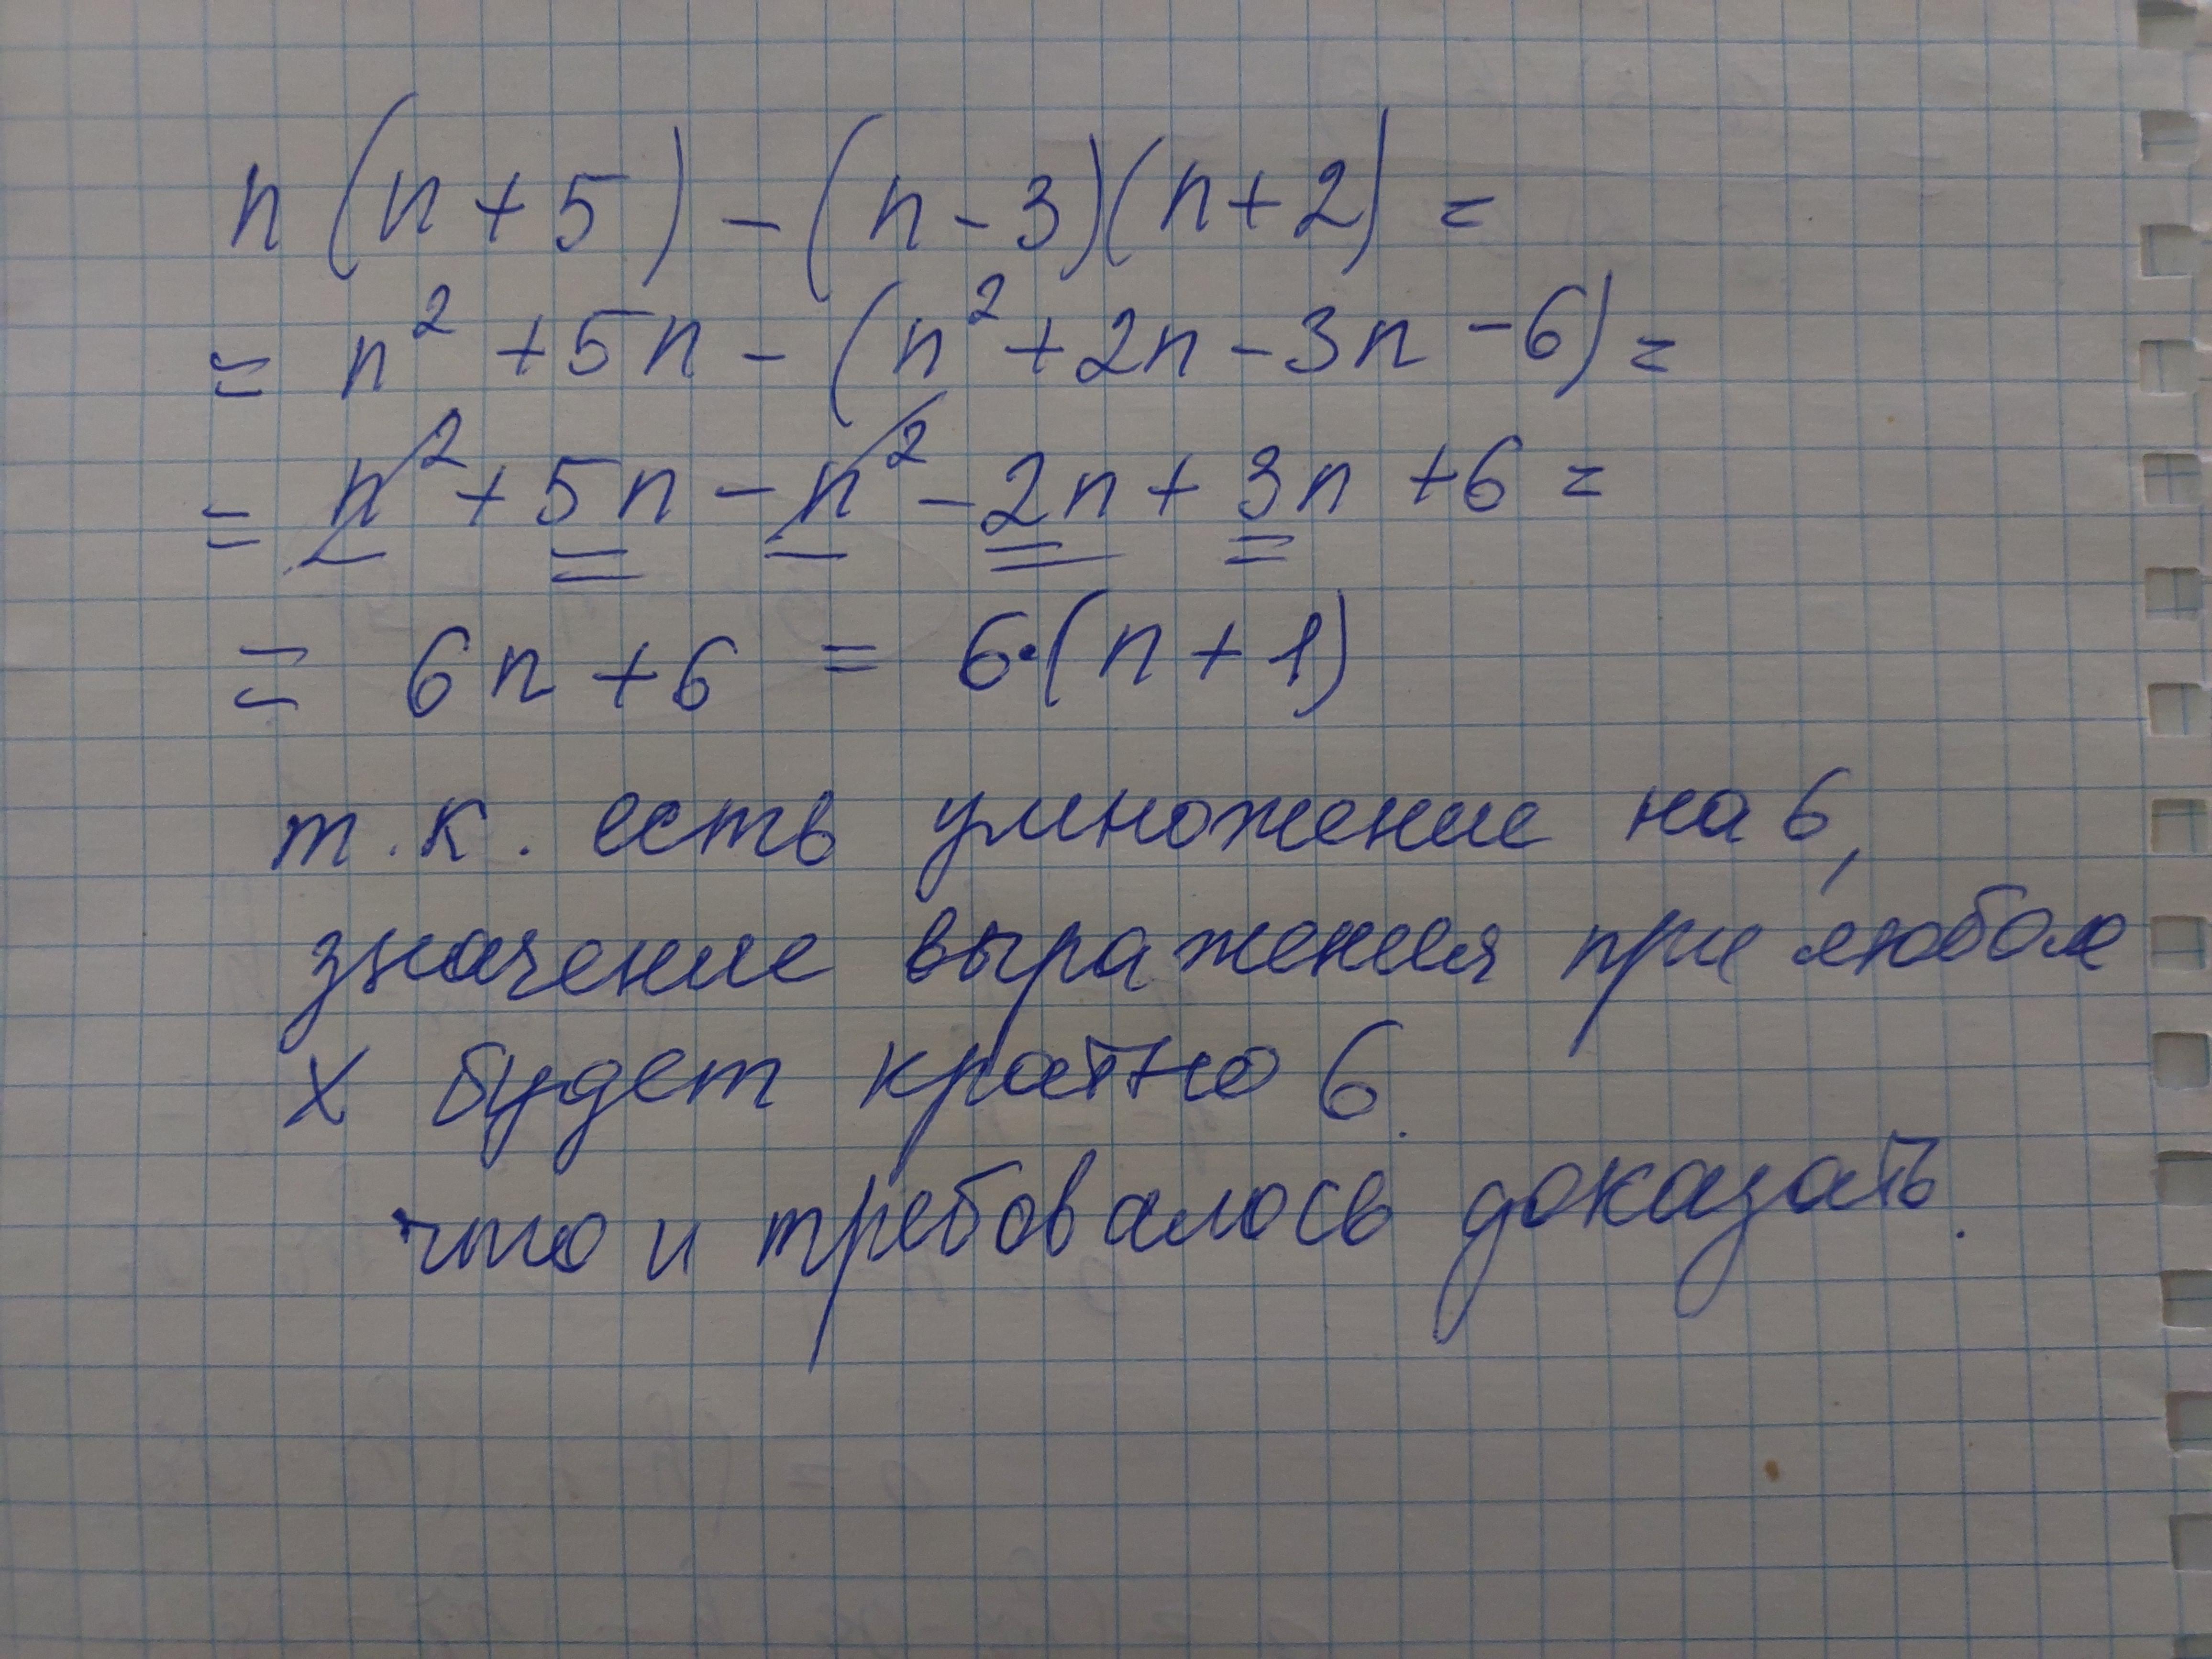 n(n+5)-(n-3)(n+2)=
= n²+5n-(n²+2n-3n-6)=
= n²+5n-n²-2n+3n+6=
= 6n+6 = 6·(n+1)
т.к. есть умножение на 6,
значение выражения при любом
x будет кратно 6.
что и требовалось доказать.